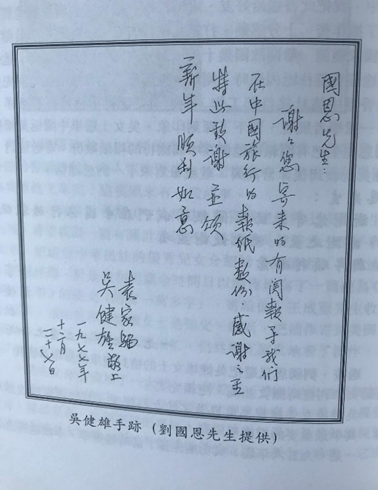 國恩先生：
謝謝您寄來的有關報導我們
在中國旅行的報紙數份．感謝之至
特此致謝 並頌
新年順利如意
袁家騮
吳健雄 敬上
一九七七年
十二月
二十七日
吳健雄手跡（劉國恩先生提供）